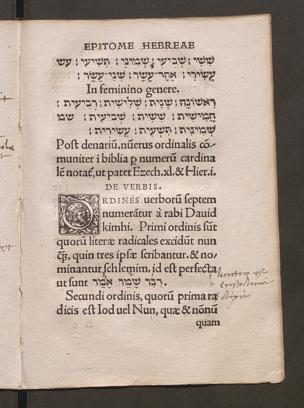 EPITOME HEBREAE
ששי; שביעי; שמוני; תשיעי; עש
עשירי; אחד עשר; שני עשר;
In feminino genere.
ראשונה; שנית; שלישית; רביעית;
חמישית; ששית; שביעית; שמו
שמינית; תשעית; עשירית;
Post denariū, nūerus ordinalis cō-
muniter i biblia ꝑ numerū cardina
lē notat᷑, ut patet Ezech.xl. & Hier.i.
DE VERBIS.
ORDINES uerborū septem
numerātur à rabi Dauid
kimhi. Primi ordinis sūt
quorū literæ radicales excidūt nun
quā, quin tres ipsæ scribantur. & no-
minantur schlemim, id est perfecta
ut sunt דבר שמר אמר.
Secundi ordinis, quorū prima ra
dicis est Iod uel Nun, quæ & nōnū
quam